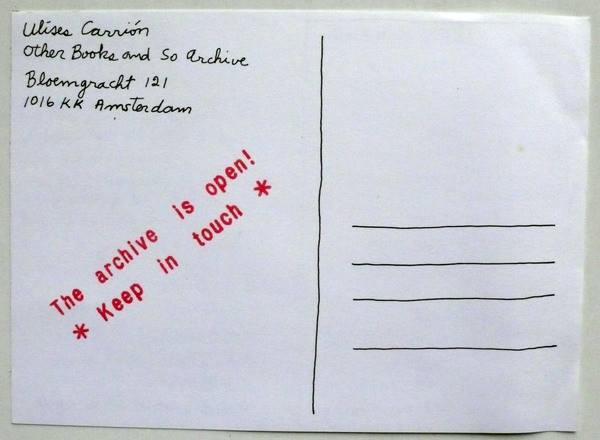 Ulises Carrión
Other Books and So Archive
Bloemgracht 121
1016 KK Amsterdam
The archive is open!
* Keep in touch *